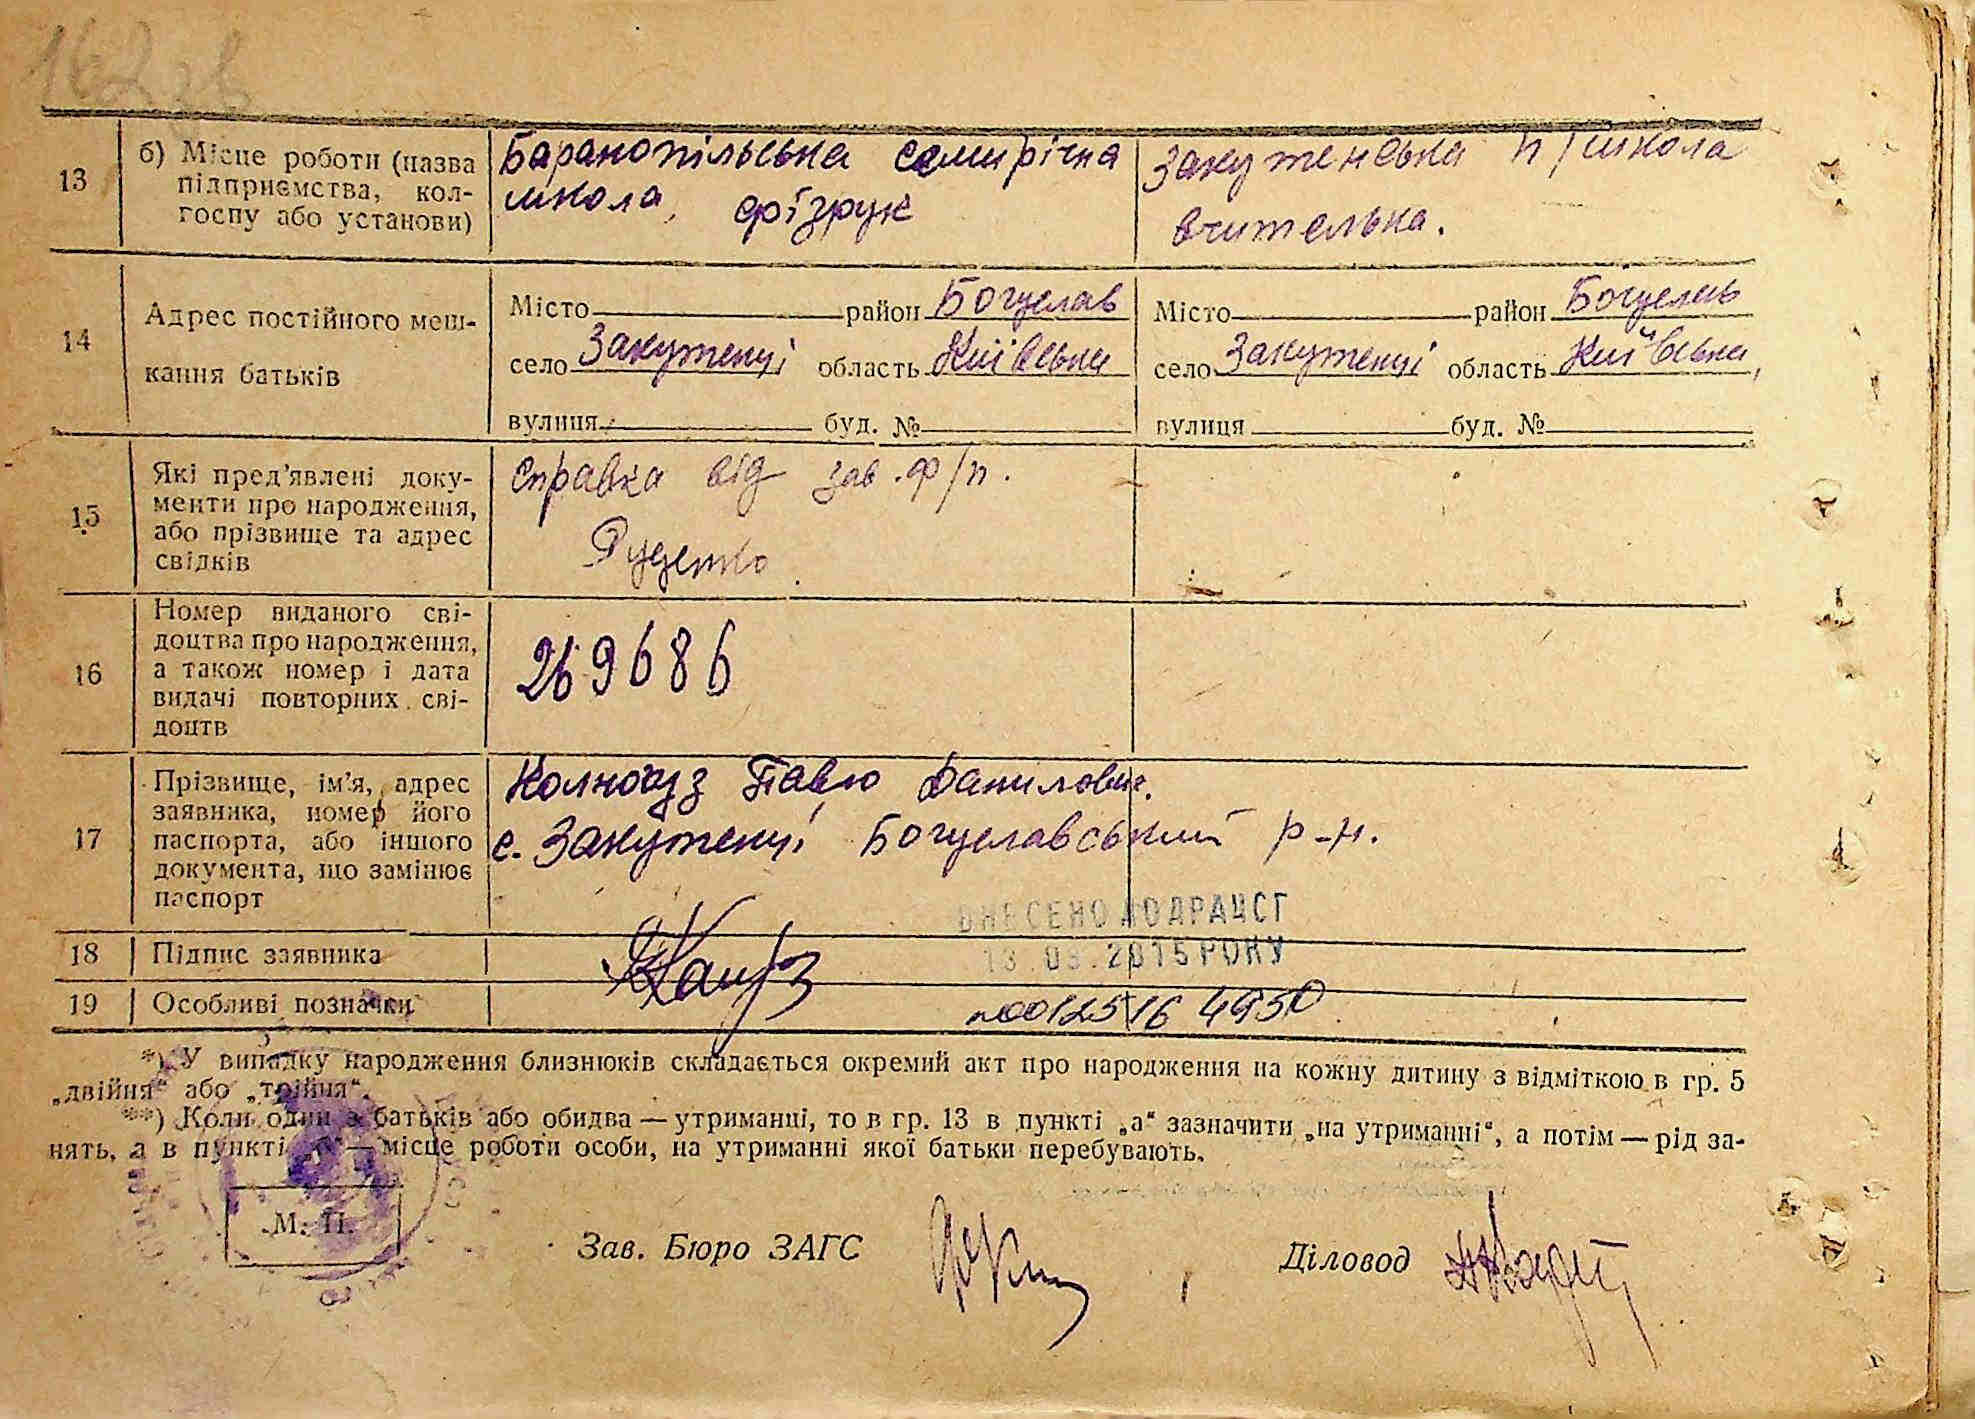 162 зв
13
б) Місце роботи (назва
підприємства, кол-
госпу або установи)
Баранопільська семирічна
школа, фізрук
Закутенська п/школа
вчителька.
14
Адрес постійного меш-
кання батьків
Місто район Богуслав
село Закутенці область Київська
вулиця буд. №
Місто район Богуслав
село Закутенці область Київська,
вулиця буд. №
15
Які пред'явлені доку-
менти про народження,
або прізвище та адрес
свідків
Справка від зав. ф/п.
16
Номер виданого сві-
доцтва про народження,
а також номер і дата
видачі повторних сві-
доцтв
269686
17
Прізвище, ім'я, адрес
заявника, номер його
паспорта, або іншого
документа, що замінює
паспорт
Павло Данилович.
с. Закутенці Богуславський р-н.
ВНЕСЕНО ДО ДРАЦСГ
18 Підпис заявника
2015 РОКУ
19 Особливі позначки
№00125164950
*) У випадку народження близнюків складається окремий акт про народження на кожну дитину з відміткою в гр. 5
„двійня“ або „трійня“.
**) Коли один з батьків або обидва — утриманці, то в гр. 13 в пункті „а“ зазначити „на утриманні“, а потім — рід за-
нять, а в пункті „б“ — місце роботи особи, на утриманні якої батьки перебувають.
М. П.
Зав. Бюро ЗАГС
Діловод